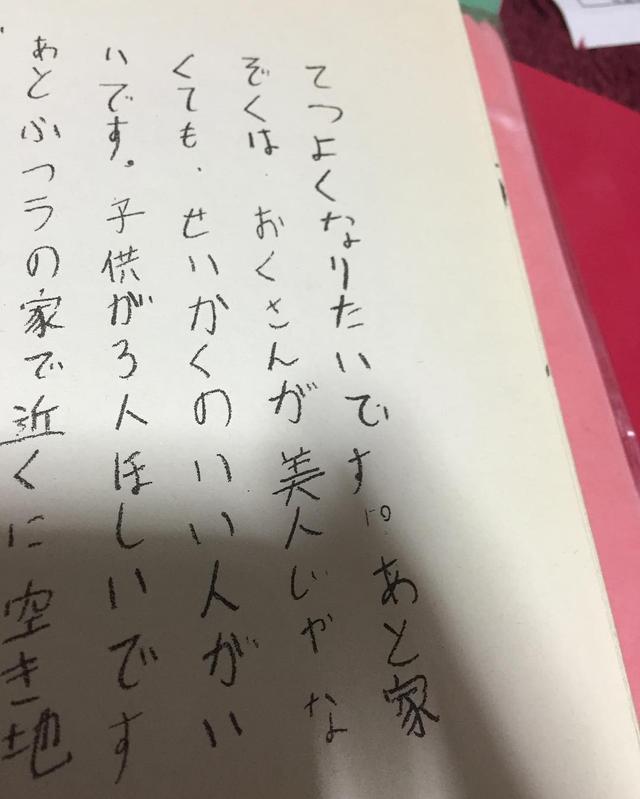 てつよくなりたいです。あと家
ぞくは、おくさんが美人じゃな
くても、せいかくのいい人がい
いです。子供が3人ほしいです
あとふつうの家で近くに空き地